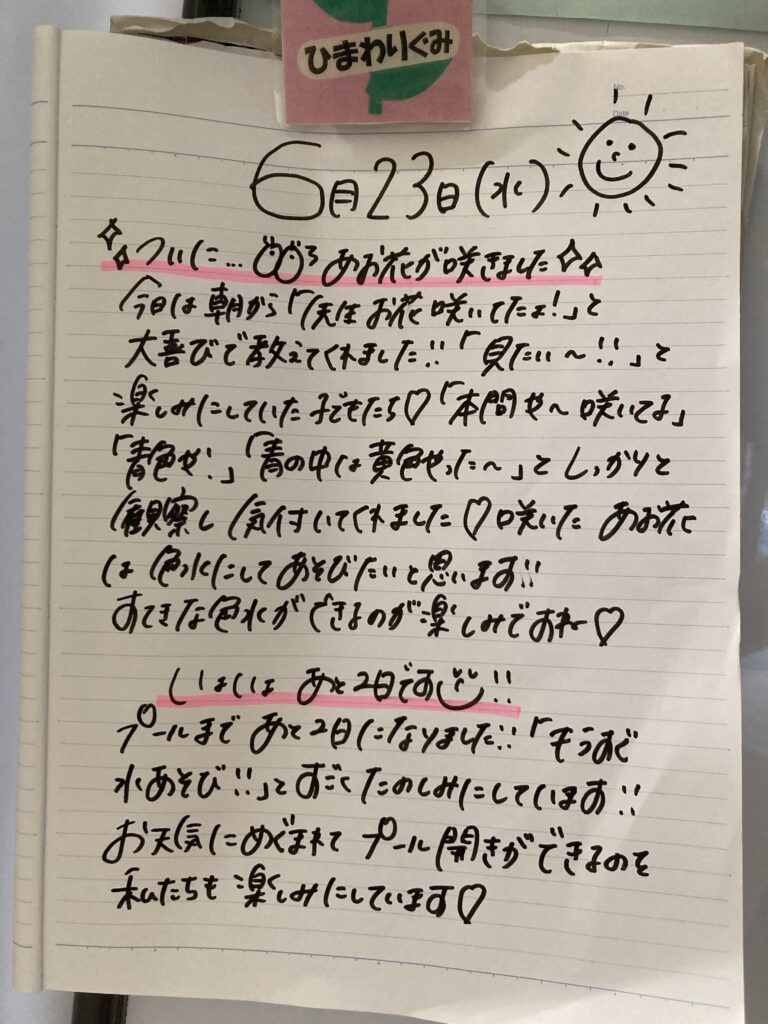 ひまわりぐみ
No.
Date
6月23日(水)
ついに… あお花が咲きました
今日は朝から「先生お花咲いてたよ!」と
大喜びで教えてくれました!!「見たい〜!!」と
楽しみにしていた子どもたち♡「本間や〜咲いてる」
「青色や!」「青の中は黄色やった〜」としっかりと
観察し気付いてくれました♡咲いたあお花
は色水にしてあそびたいと思います!!
すてきな色水ができるのが楽しみですね♡
いよいよあと2日です!!
プールまであと2日になりました!!「もうすぐ
水あそび!!」とすごくたのしみにしています!!
お天気にめぐまれてプール開きができるのを
私たちも楽しみにしています♡